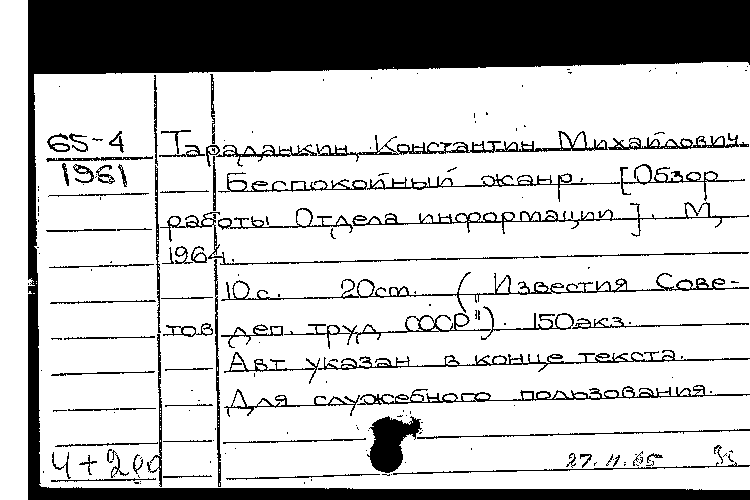 65-4
1961
Тараданкин, Константин Михайлович.
Беспокойный жанр. [Обзор
работы Отдела информации]. М,
1964.
10с. 20см. („Известия Сове-
тов деп. труд СССР"). 150экз.
Авт указан в конце текста.
Для служебного пользования.
4+200
27.11.65